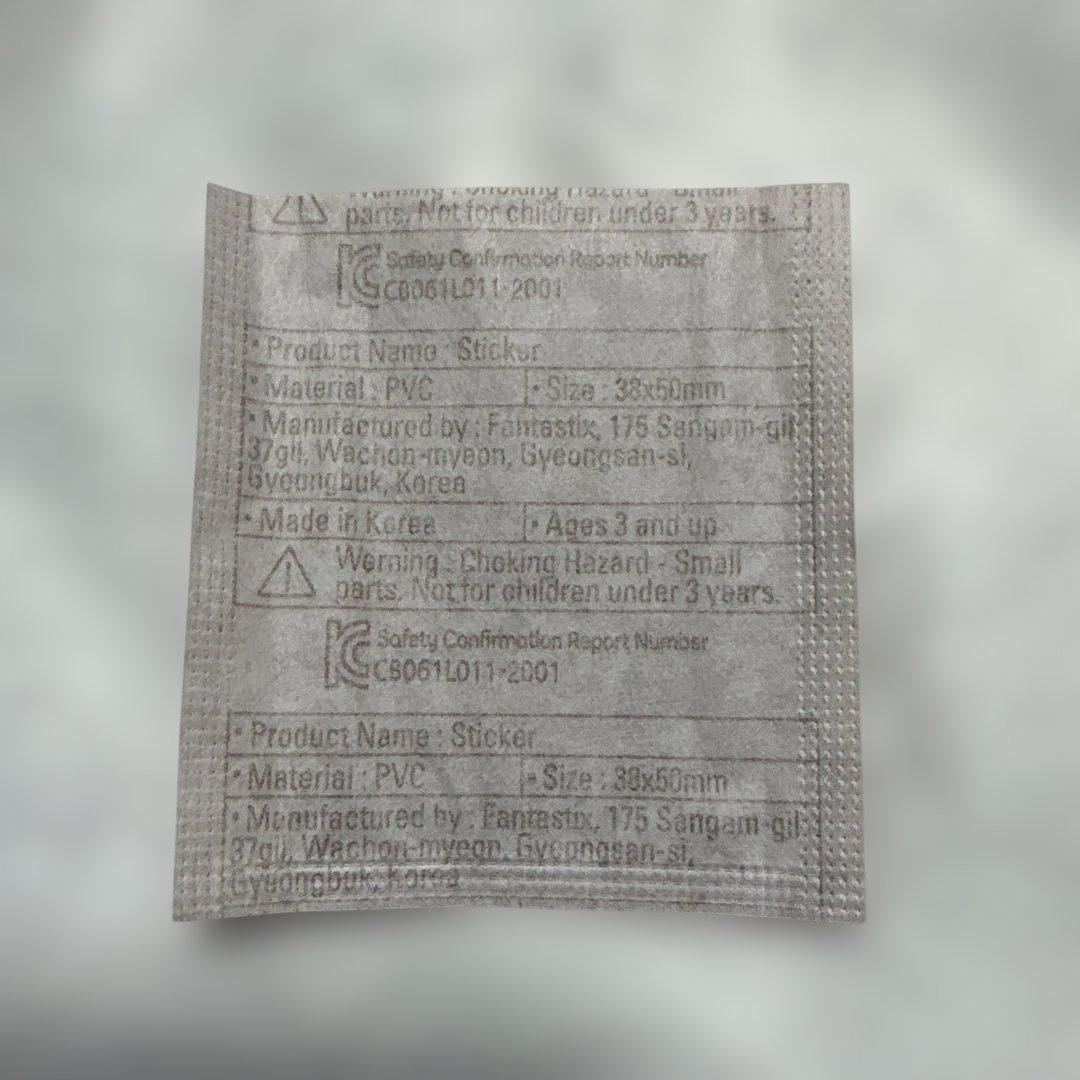 Warning : Choking Hazard - Small
parts. Not for children under 3 years.
KC Safety Confirmation Report Number
CB061L011-2001
• Product Name : Sticker
• Material : PVC • Size : 38x50mm
• Manufactured by : Fantastix, 175 Sangam-gil
37gil, Wachon-myeon, Gyeongsan-si,
Gyeongbuk, Korea
• Made in Korea • Ages 3 and up
Warning : Choking Hazard - Small
parts. Not for children under 3 years.
KC Safety Confirmation Report Number
CB061L011-2001
• Product Name : Sticker
• Material : PVC • Size : 38x50mm
• Manufactured by : Fantastix, 175 Sangam-gil
37gil, Wachon-myeon, Gyeongsan-si,
Gyeongbuk, Korea